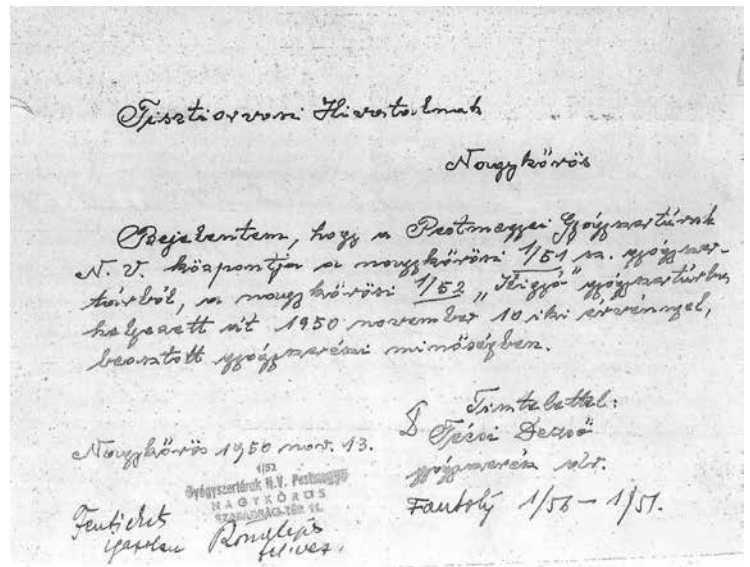 Tisztiorvosi Hivatalnak
Nagykőrös
Bejelentem, hogy a Pestmegyei Gyógyszertárak
N. V. központja a nagykőrösi 1/51 sz. gyógyszer-
tárból, a nagykőrösi 1/52 „Kigyó” gyógyszertárba
helyezett át 1950 november 10 iki érvénnyel,
beosztott gyógyszerészi minőségben.
Tisztelettel:
Técsi Dezső
gyógyszerész
Nagykőrös 1950 nov. 13.
1/52
Gyógyszertárak N.V. Pestmegye
NAGYKŐRÖS
SZABADSÁG-TÉR 11.
Fentieket
igazolom
1/56 – 1/51.